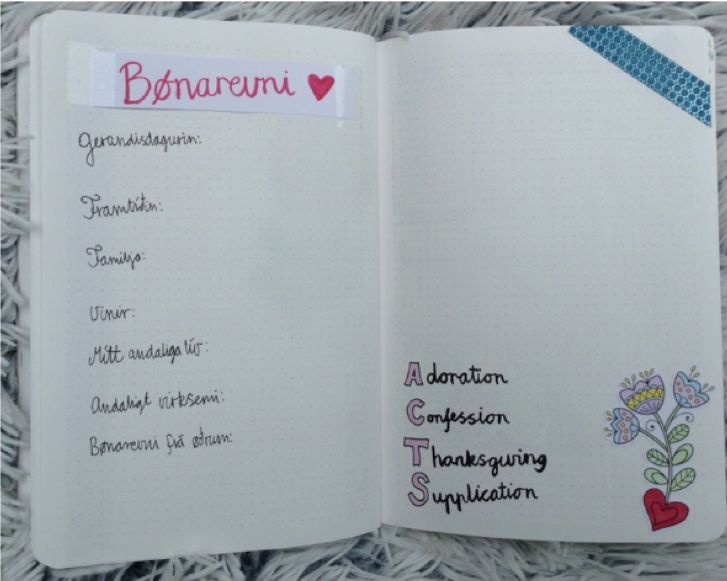 Bønarevni
Gerandisdagurin:
Framtíðin:
Familja:
Vinir:
Mítt andaliga lív:
Andaligt virksemi:
Bønarevni frá øðrum:
Adoration
Confession
Thanksgiving
Supplication